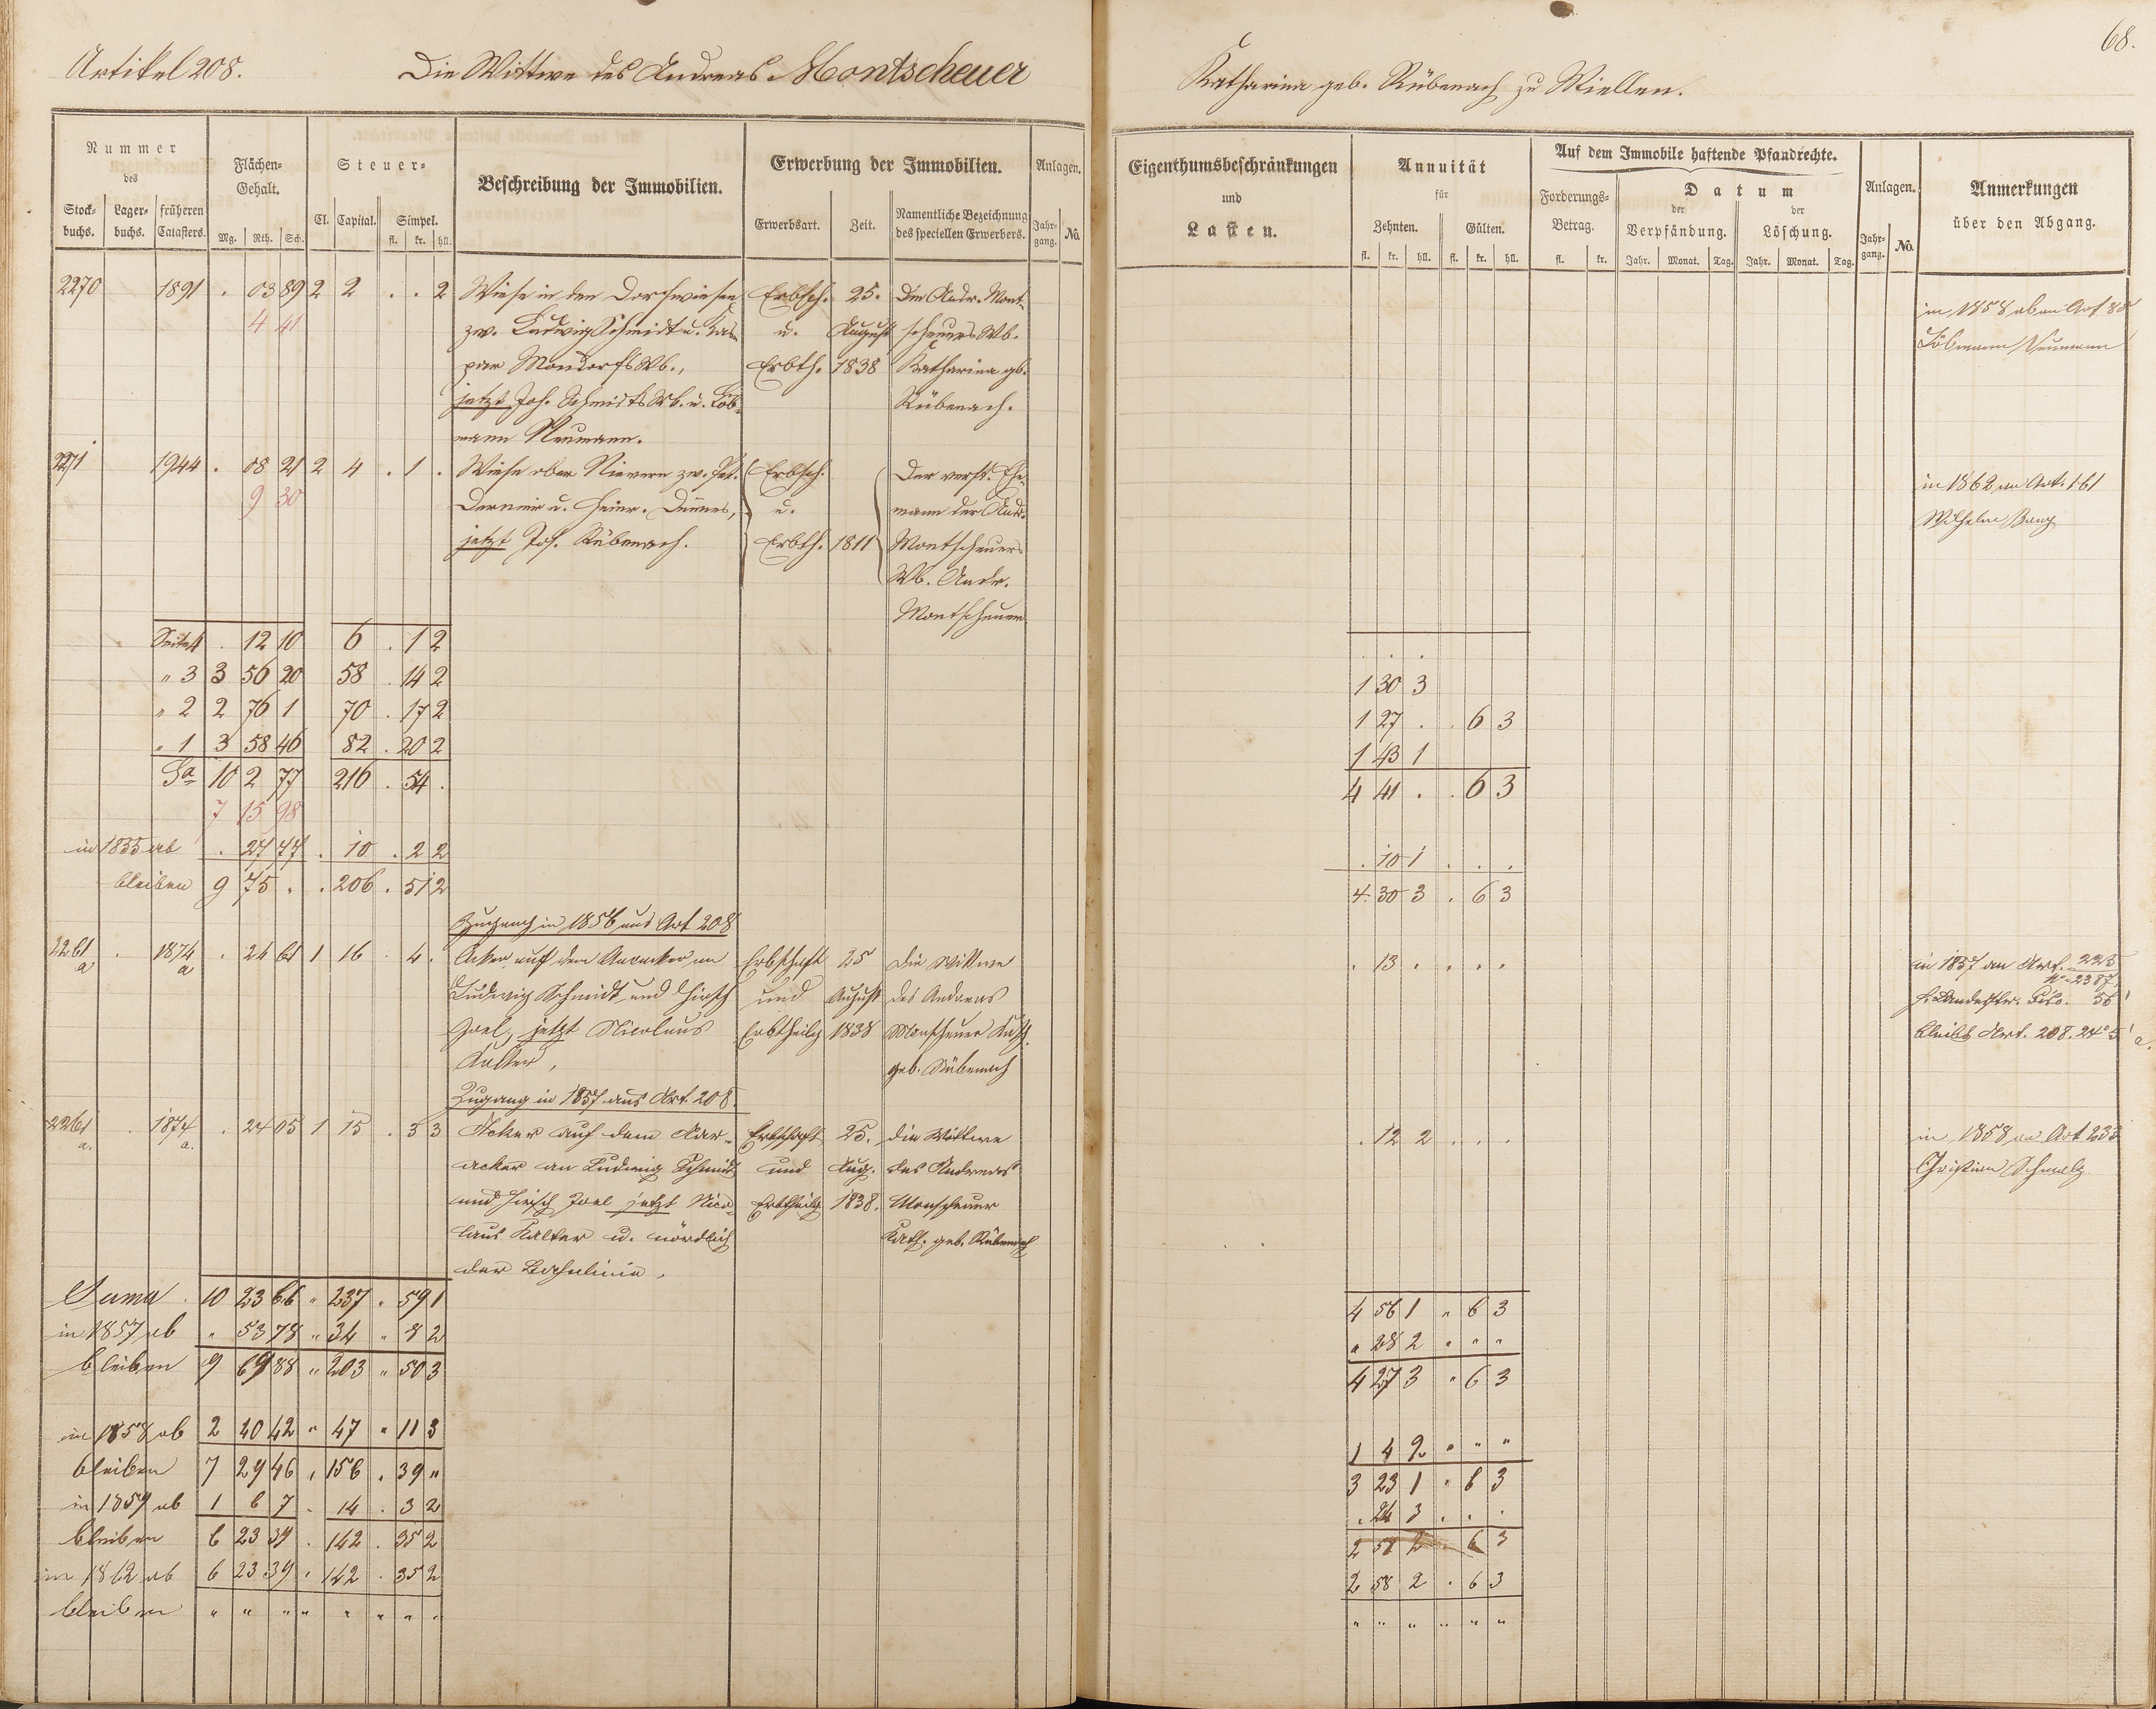 68.
Artikel 208. Die Wittwe des Andreas Montscheuer Katharina geb. Rübenach zu Miellen.
Nummer des
Stock-buchs. Lager-buchs. früheren Catasters.
Flächen-Gehalt.
Mg. Rth. Sch.
Steuer-
Cl. Capital. Simpel.
fl. kr. hll.
Beschreibung der Immobilien.
Erwerbung der Immobilien.
Erwerbsart. Zeit. Namentliche Bezeichnung des speciellen Erwerbers.
Anlagen.
Jahr-gang. No.
Eigenthumsbeschränkungen
und
Lasten.
Annuität
für
Zehnten. Gülten.
fl. kr. hll. fl. kr. hll.
Auf dem Immobile haftende Pfandrechte.
Forderungs-Betrag.
fl. kr.
Datum
der Verpfändung. der Löschung.
Jahr. Monat. Tag. Jahr. Monat. Tag.
Anlagen.
Jahr-gang. No.
Anmerkungen
über den Abgang.
2270 1891 . 03 89 2 2 . . 2 Wiese in den Dorfwiesen Erbsch. 25. Die Andr. Mont- in 1858 ab an Art 88
4 41 zw. Ludwig Schmidt u. Kas- u. August scheuers Wb. Löbmann Neumann
par Mondorfs Wb., Erbth. 1838 Katharina gb.
jetzt Joh. Schmidts Wb. u. Löb- Rübenach.
mann Neumann.
2271 1944 . 08 21 2 4 . 1 . Wiese ober Nievern zw. Pet. Erbsch. Der verst. Ehe- in 1862 an Art. 161
9 30 u. Heinr. u. mann der Andr. Wilhelm
jetzt Jos. Rübenach. Erbth. 1811 Montscheuers
Wb. Andr.
Montscheuer
Seite 4 . 12 10 6 . 1 2 . . .
" 3 3 56 20 58 . 14 2 1 30 3
" 2 2 76 1 70 . 17 2 1 27 . . 6 3
" 1 3 58 46 82 . 20 2 1 43 1
Sa 10 2 77 216 . 54 . 4 41 . . 6 3
7 15 98
in 1855 ab . 27 77 . 10 . 2 2 . 10 1 . . .
bleiben 9 75 . . 206 . 51 2 4 30 3 . 6 3
Zugang in 1856 aus Art 208
2261 a . 1874 a . 24 61 1 16 . 4 . Acker auf dem Aaracker an Erbschaft 25 Die Wittwe . 13 . . . . in 1857 an Art. 223
Ludwig Schmidt und Hirsch und August des Andreas No 2387,
Joel, jetzt Nicolaus Erbtheilg 1838 Monscheuer Kath. 56'
Kalter, geb. Rübenach bleibt Art. 208. 24° 5' a.
Zugang in 1857 aus Art. 208.
2261 a. . 1874 a. . 24 05 1 15 . 3 3 Acker auf dem Aar- Erbschaft 25. die Wittwe . 12 2 . . . in 1858 an Art 233
acker an Ludwig Schmidt und Aug. des Andreas Christian Schmalz
und Hirsch Joel jetzt Nico- Erbtheilg 1838. Monscheuer
laus Kalter u. nördlich Kath. geb. Rübenach
der Bahnlinie.
Suma . 10 23 66 " 237 " 59 1 4 56 1 " 6 3
in 1857 ab " 53 78 " 34 " 8 2 " 28 2 " " "
bleiben 9 69 88 " 203 " 50 3 4 27 3 " 6 3
in 1858 ab 2 40 42 " 47 " 11 3 1 4 2 " " "
bleiben 7 29 46 " 156 . 39 " 3 23 1 " 6 3
in 1859 ab 1 6 7 . 14 . 3 2 . 24 3 . . .
bleiben 6 23 39 . 142 . 35 2 2 58 2 . 6 3
in 1862 ab 6 23 39 " 142 . 35 2 2 58 2 . 6 3
bleiben " " " " " " " " " " " " " "